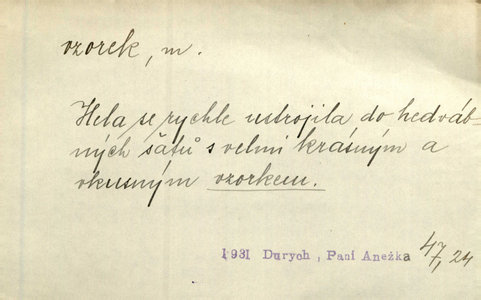 vzorek, m.
Hela se rychle ustrojila do hedváb-
ných šatů s velmi krásným a
vkusným vzorkem.
1931 Durych, Paní Anežka 47, 24